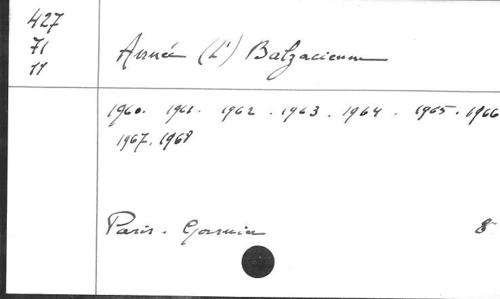 427
71
11
Année (L') Balzacienne
1960. 1961. 1962. 1963. 1964. 1965. 1966
1967. 1968
Paris. Garnier 8°